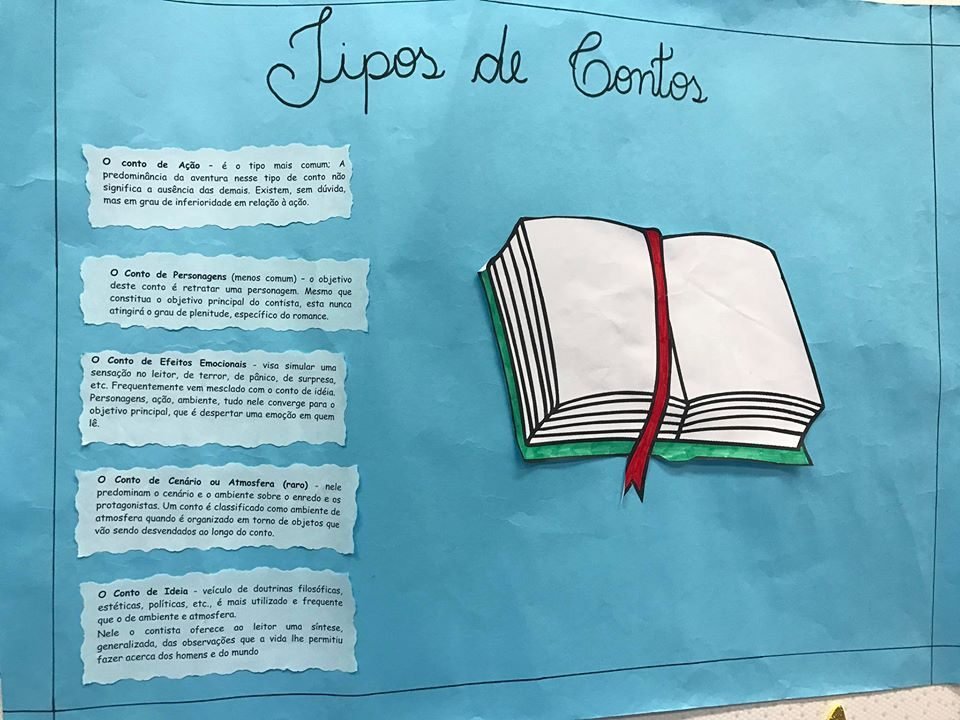 Tipos de Contos
O conto de Ação - é o tipo mais comum; A
predominância da aventura nesse tipo de conto não
significa a ausência das demais. Existem, sem dúvida,
mas em grau de inferioridade em relação à ação.
O Conto de Personagens (menos comum) - o objetivo
deste conto é retratar uma personagem. Mesmo que
constitua o objetivo principal do contista, esta nunca
atingirá o grau de plenitude, específico do romance.
O Conto de Efeitos Emocionais - visa simular uma
sensação no leitor, de terror, de pânico, de surpresa,
etc. Frequentemente vem mesclado com o conto de idéia.
Personagens, ação, ambiente, tudo nele converge para o
objetivo principal, que é despertar uma emoção em quem
lê.
O Conto de Cenário ou Atmosfera (raro) - nele
predominam o cenário e o ambiente sobre o enredo e os
protagonistas. Um conto é classificado como ambiente de
atmosfera quando é organizado em torno de objetos que
vão sendo desvendados ao longo do conto.
O Conto de Ideia - veículo de doutrinas filosóficas,
estéticas, políticas, etc., é mais utilizado e frequente
que o de ambiente e atmosfera.
Nele o contista oferece ao leitor uma síntese,
generalizada, das observações que a vida lhe permitiu
fazer acerca dos homens e do mundo